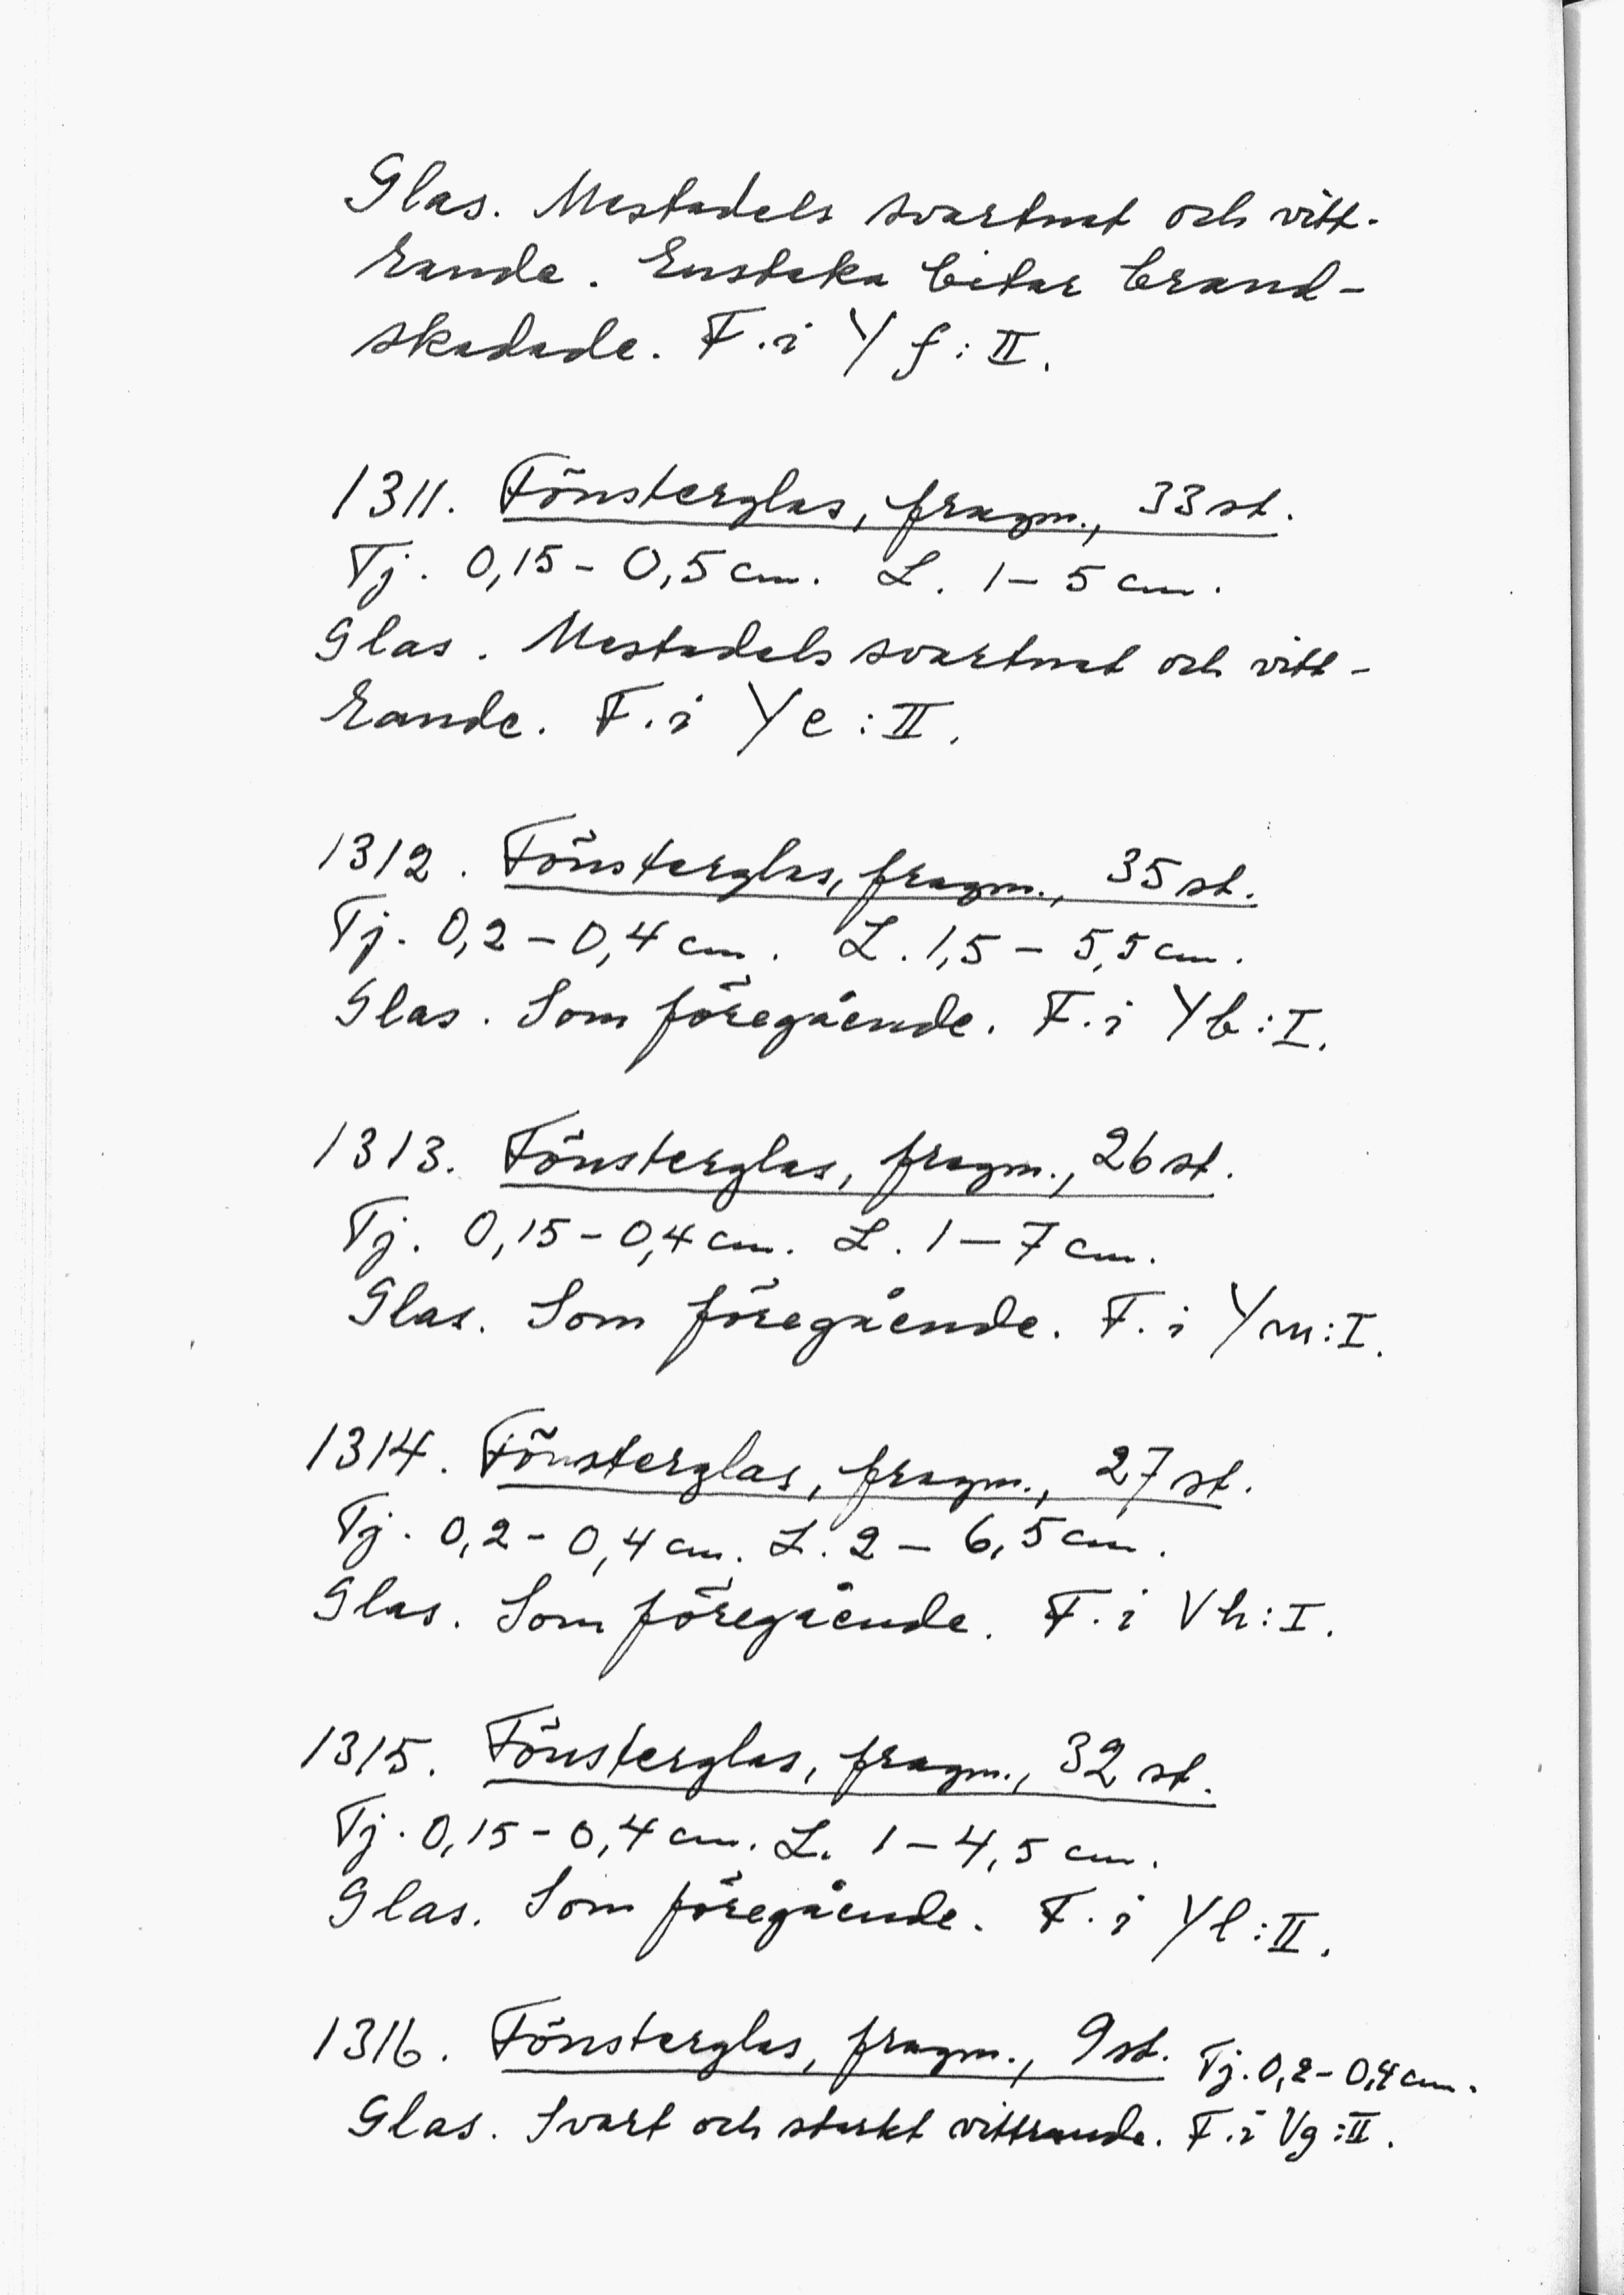 Glas. Mestadels svartnat och vitt-
rande. Enstaka bitar brand-
skadade. F. i Yf:II.
1311. Fönsterglas, fragm., 33 st.
Tj. 0,15-0,5 cm. L. 1-5 cm.
Glas. Mestadels svartnat och vitt-
rande. F. i Ye:II.
1312. Fönsterglas, fragm., 35 st.
Tj. 0,2-0,4 cm. L. 1,5-5,5 cm.
Glas. Som föregående. F. i Yb:I.
1313. Fönsterglas, fragm., 26 st.
Tj. 0,15-0,4 cm. L. 1-7 cm.
Glas. Som föregående. F. i Ym:I.
1314. Fönsterglas, fragm., 27 st.
Tj. 0,2-0,4 cm. L. 2-6,5 cm.
Glas. Som föregående. F. i Vh:I.
1315. Fönsterglas, fragm., 32 st.
Tj. 0,15-0,4 cm. L. 1-4,5 cm.
Glas. Som föregående. F. i Yl:II.
1316. Fönsterglas, fragm., 9 st. Tj. 0,2-0,4 cm.
Glas. Svart och starkt vittrande. F. i Vg:II.